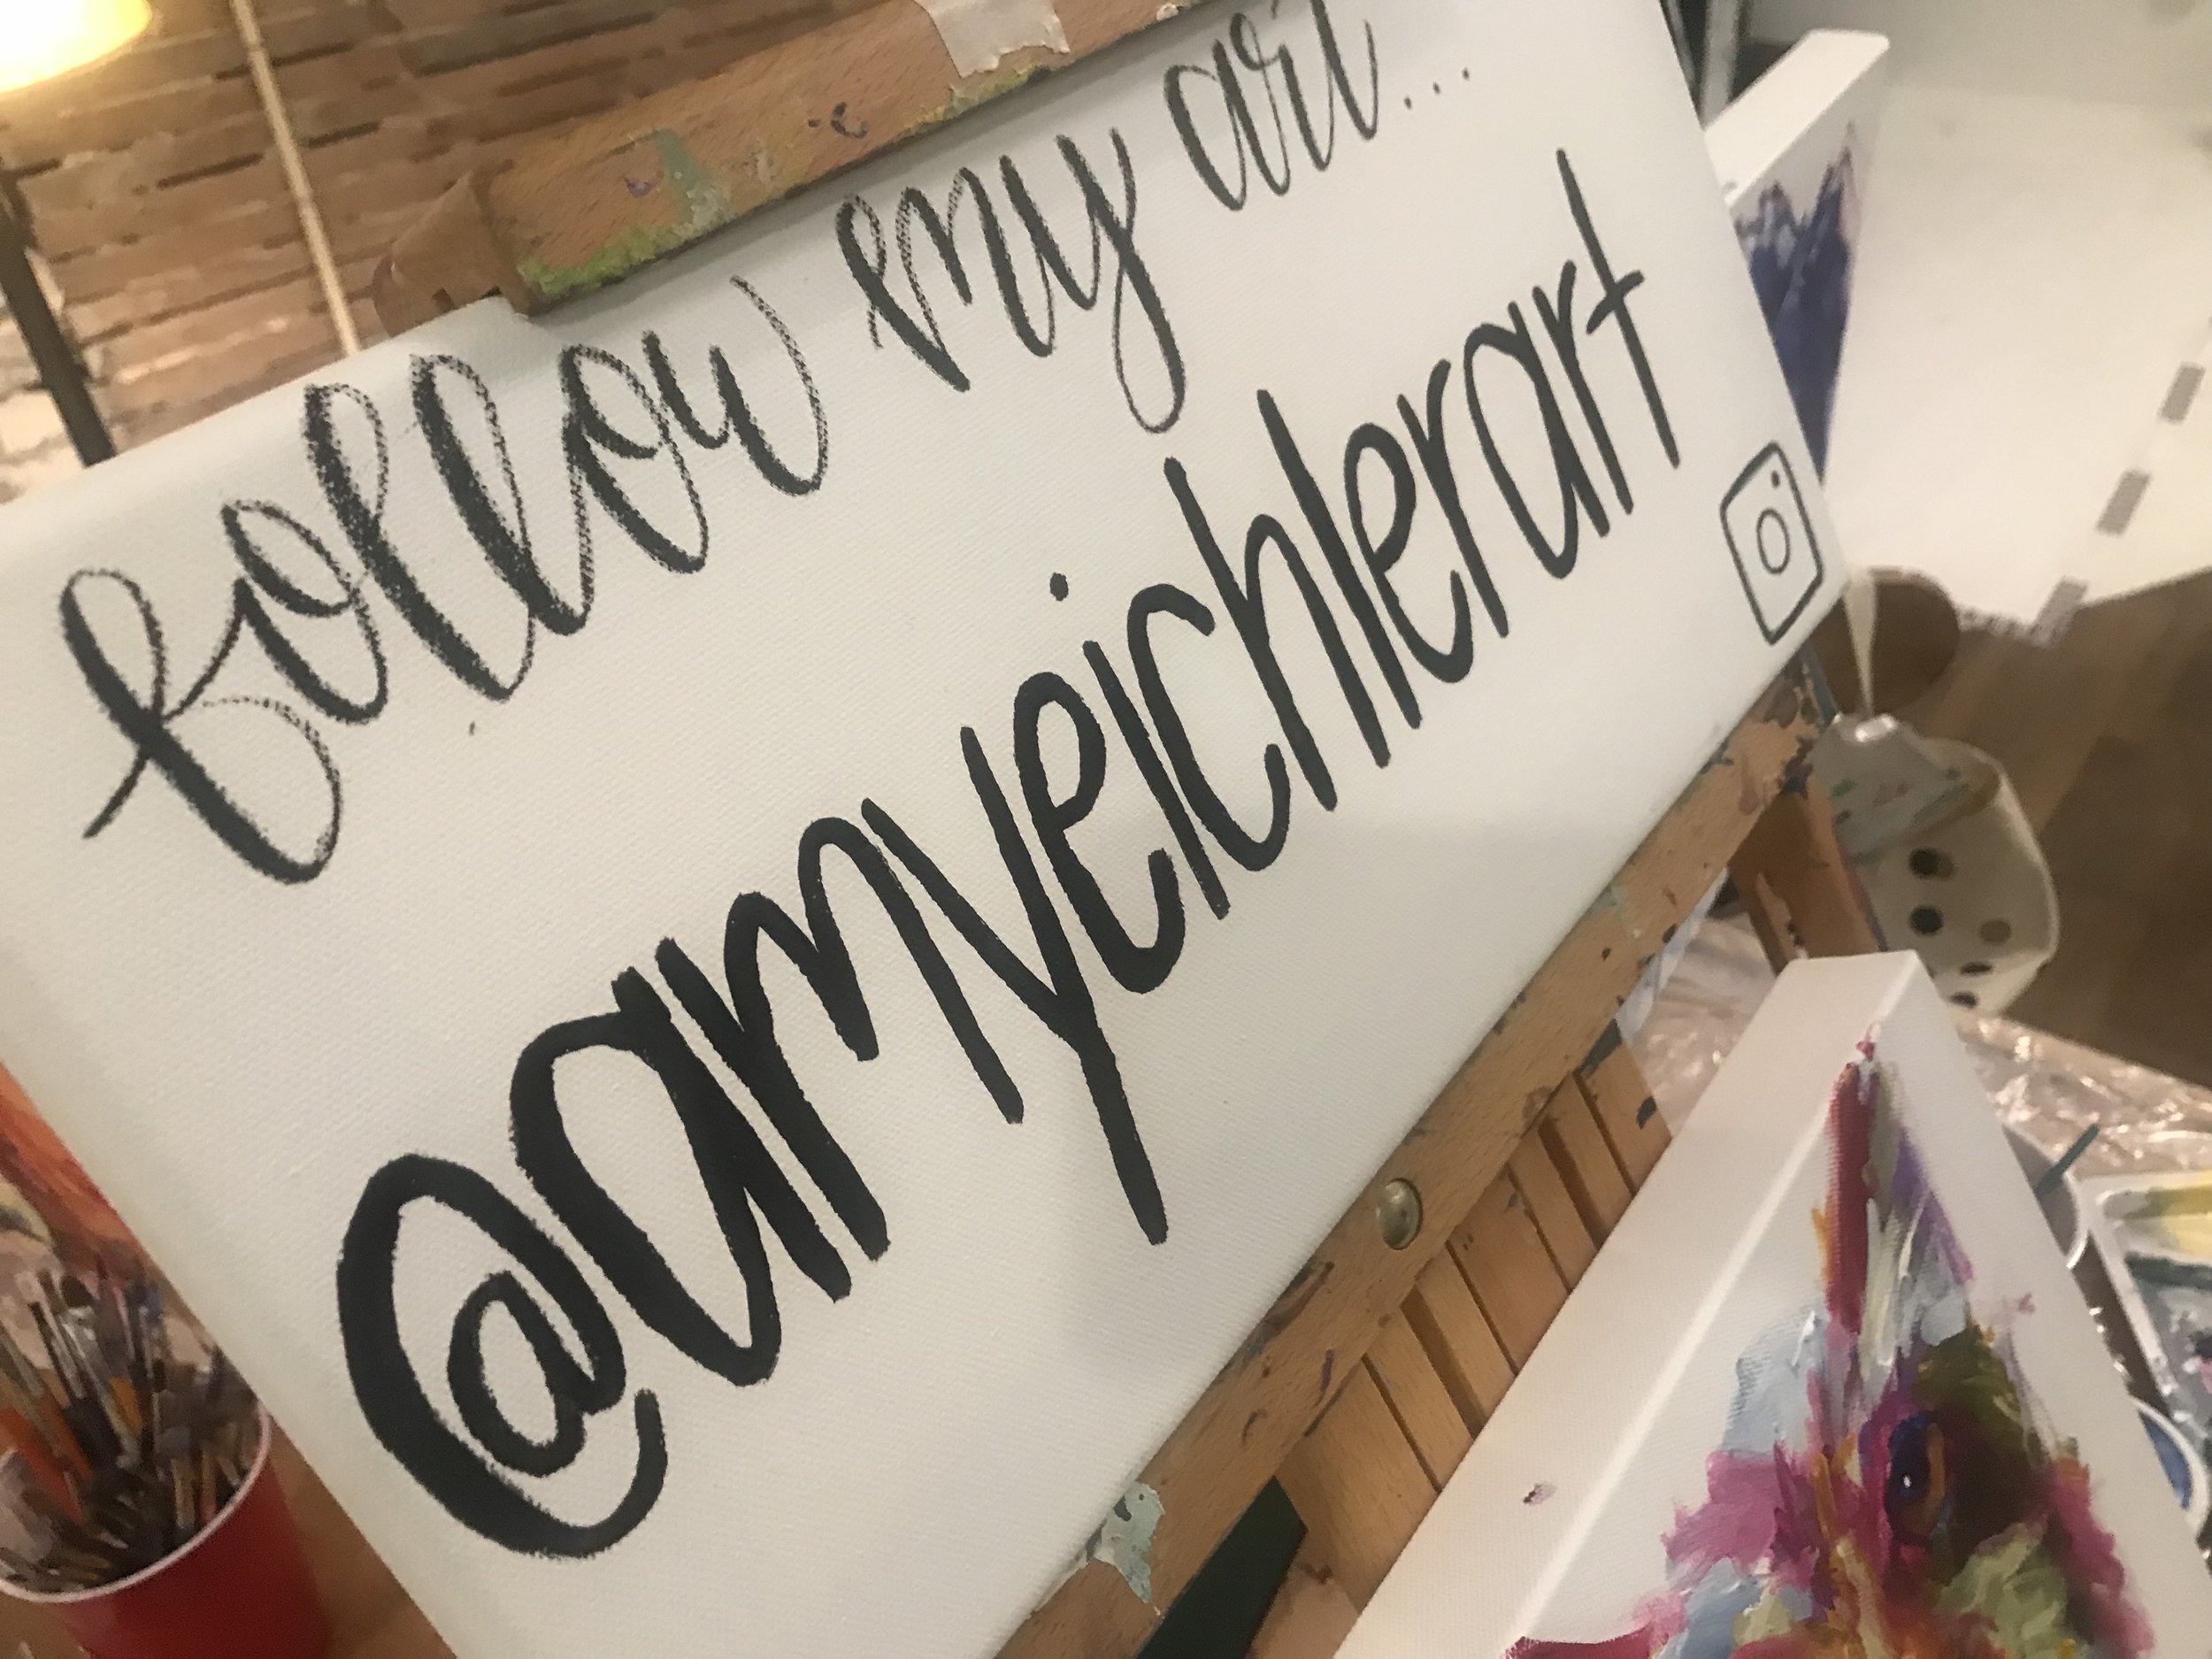 follow my art...
@amyeichlerart